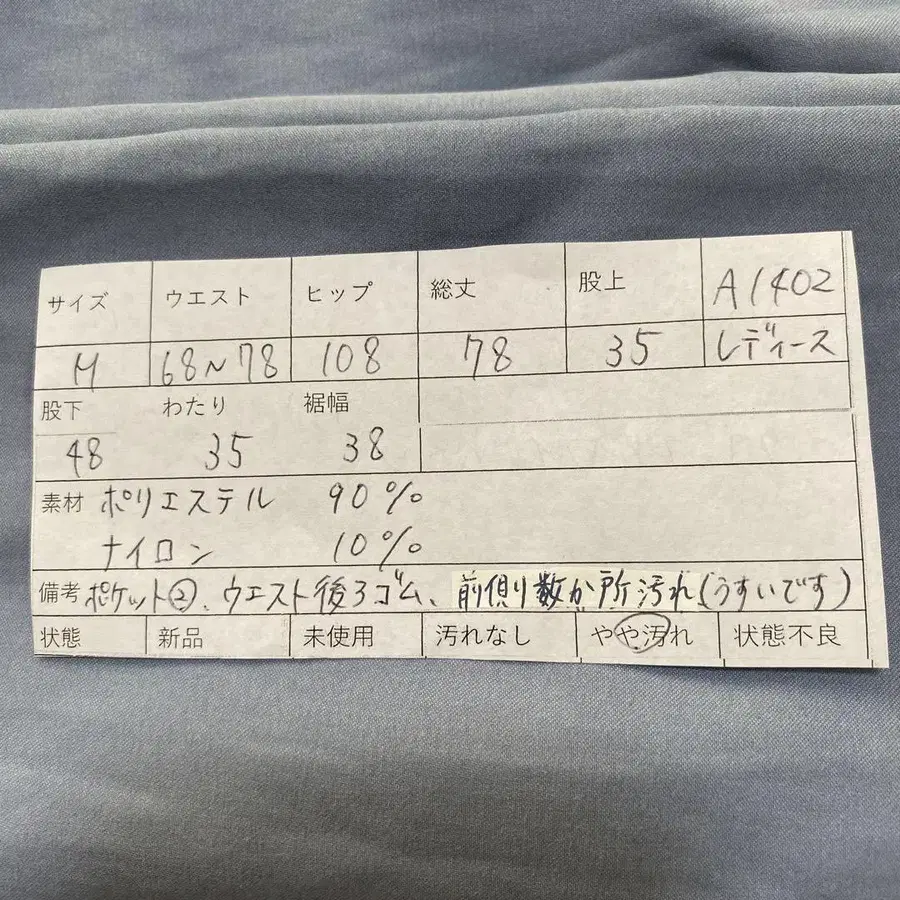 サイズ ウエスト ヒップ 総丈 股上 A1402
M 68~78 108 78 35 レディース
股下 わたり 裾幅
48 35 38
素材 ポリエステル 90%
ナイロン 10%
備考 ポケット②、ウエスト後ろゴム、前側数か所汚れ(うすいです)
状態 新品 未使用 汚れなし やや汚れ 状態不良